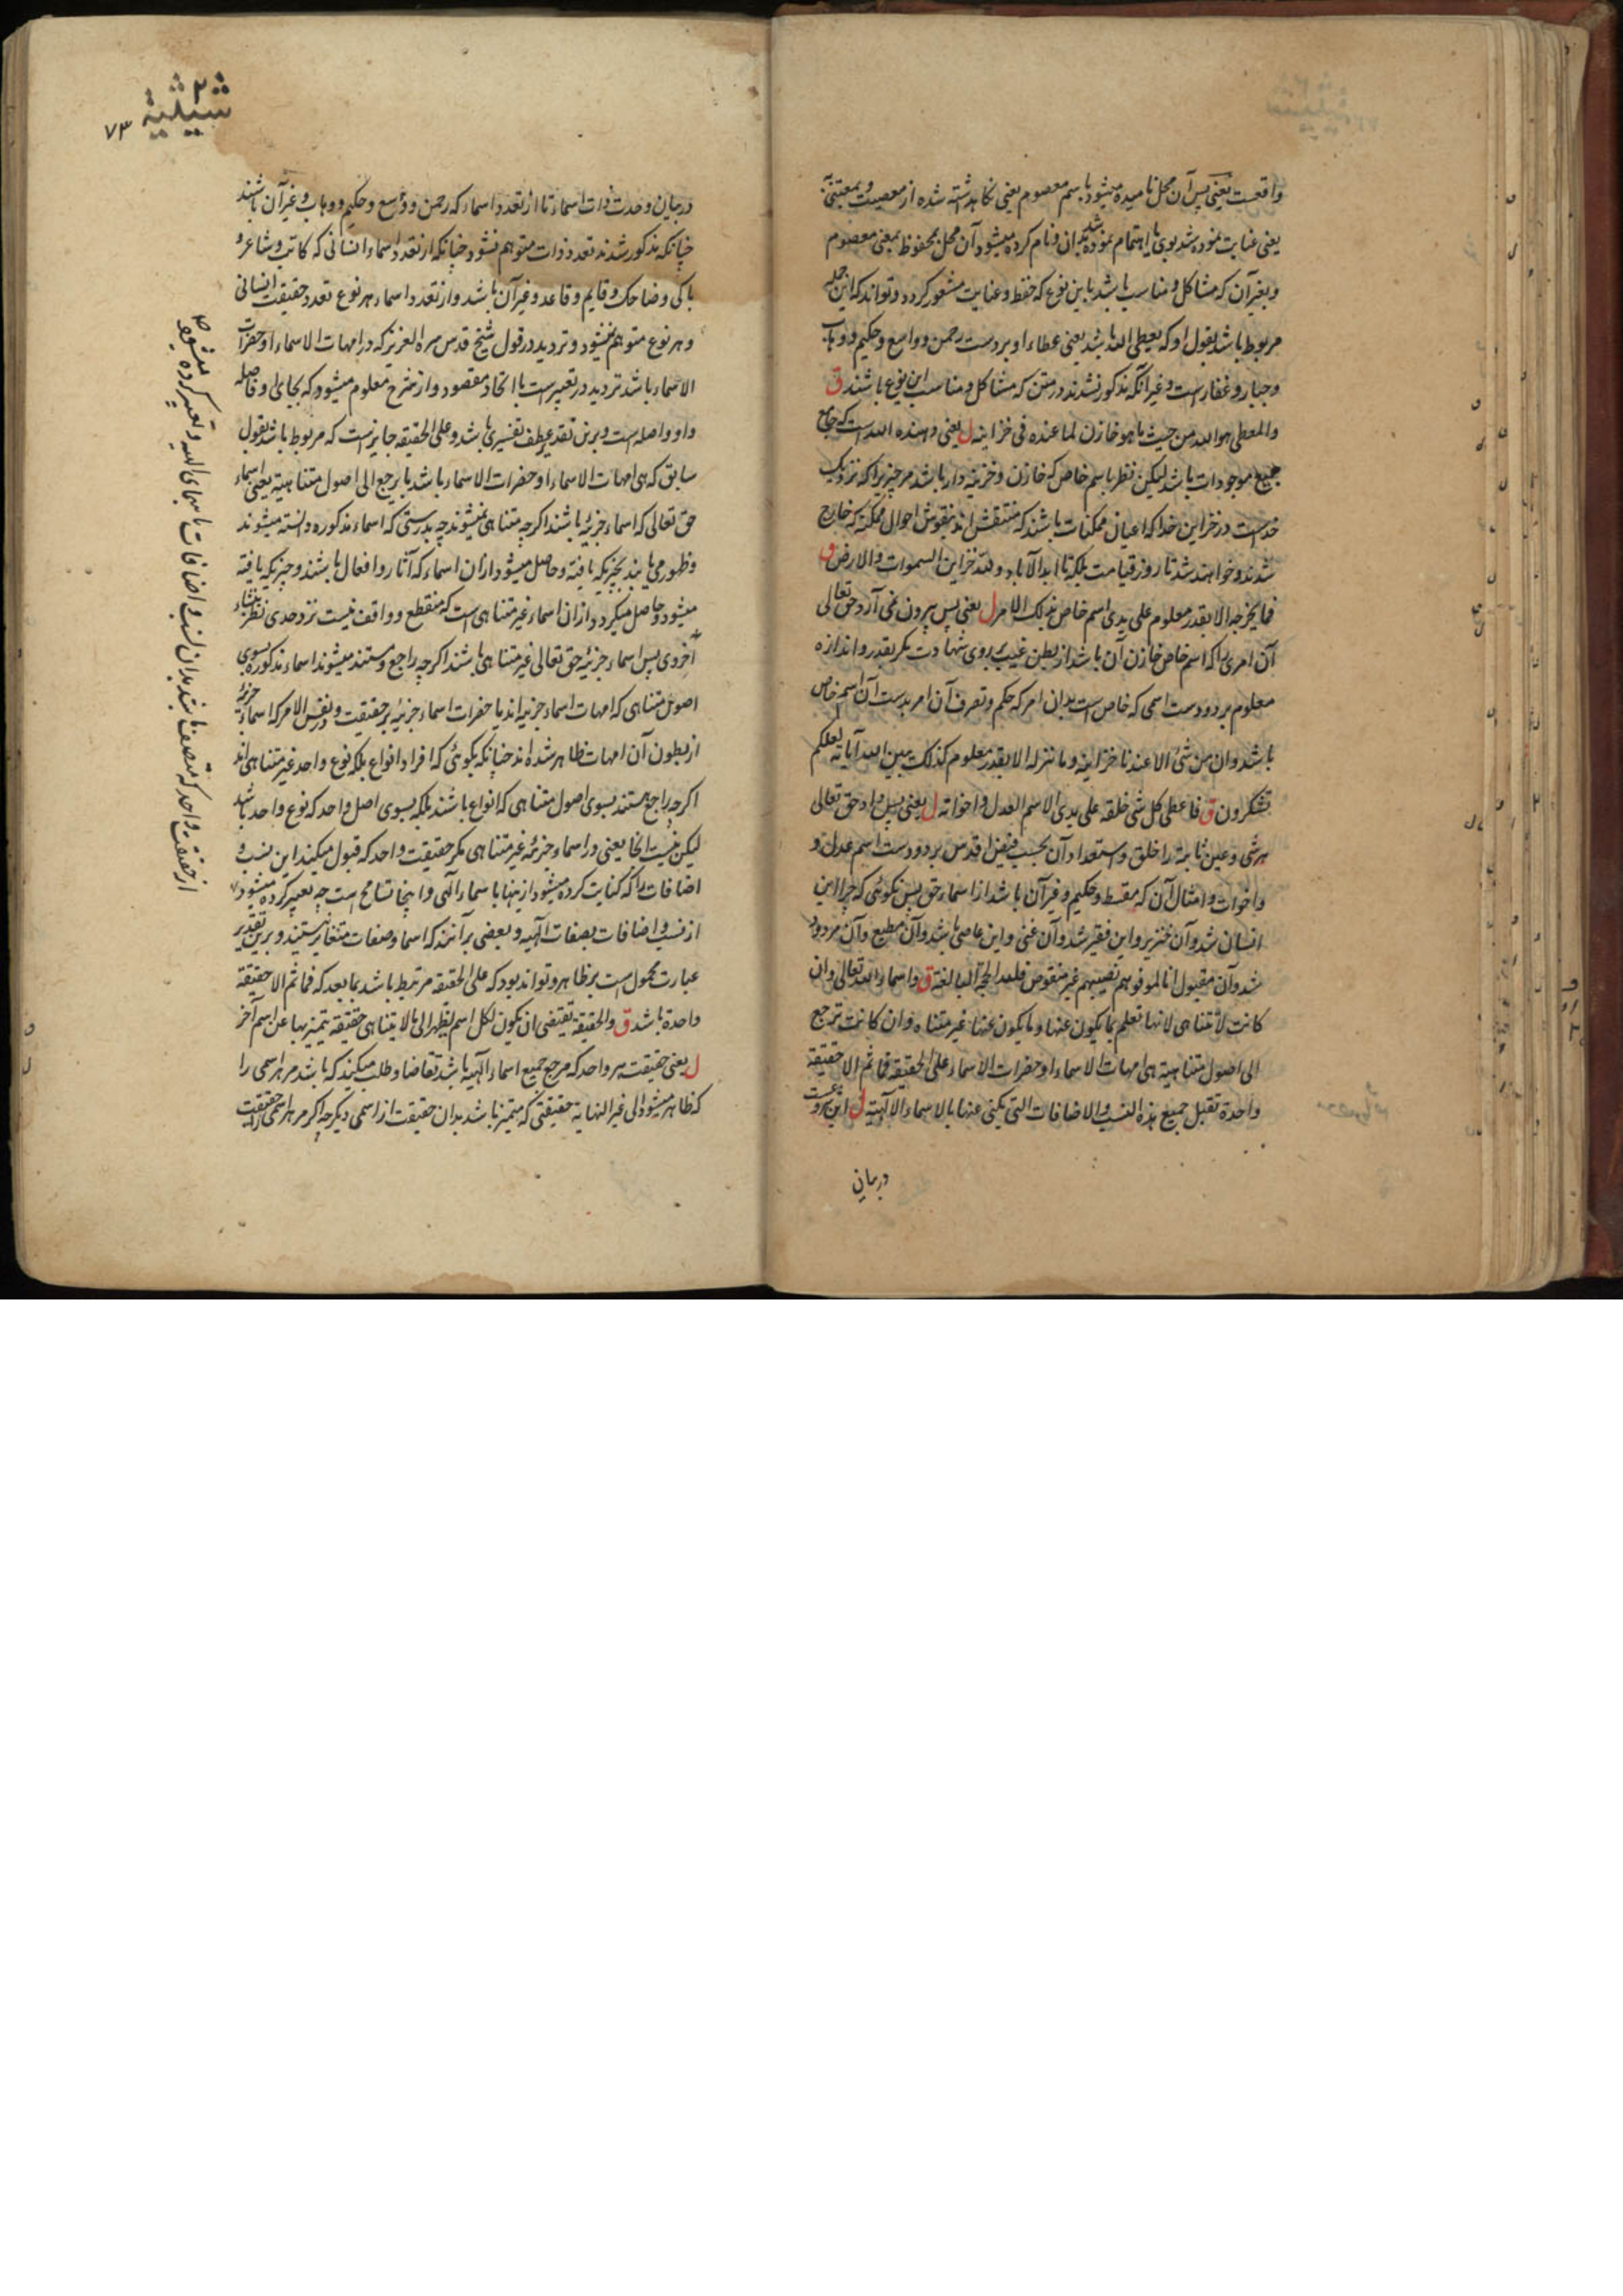 واقعیت یعنی پس آن محل نامیده میشود باسم معصوم یعنی نکاهداشته شده از معصیت و بمعتنی به
یعنی عنایت نموده شد بوی یا اهتمام نموده شد بران و نام کرده میشود آن محل بمحفوظ بمعنی معصوم
و بغیر آن که مشاکل و مناسب باشد باین نوع که حفظ و عنایت مشعور کردد و تواند که این جمله
مربوط باشد بقول او که یعطی الله باشد یعنی عطاء او بر دست رحمن و واسع و حکیم و وهاب
و جبار و غفار است و غیر آنکه مذکور نشدند در متن که مشاکل و مناسب این نوع باشند ق
والمعطی هو الله من حیث ما هو خازن لما عنده فی خزاینه ل یعنی دهنده الله است که جامع
جمیع موجودات باشد لیکن نظر باسم خاص که خازن و خزینه دار باشد مر چیزیرا که نزدیک
خداست در خزاین خدا که اعیان ممکنات باشند که منتقش اند بنقوش احوال ممکنه که خارج
شدند و خواهند شد تا روز قیامت بلکه تا ابد الآباد و لله خزاین السموات والارض ق
فما یخرجه الا بقدر معلوم علی یدی اسم خاص بذلک الامر ل یعنی پس بیرون نمی آرد حق تعالی
آن امری را که اسم خاص خازن آن باشد از بطن غیب بروی شهادت مکر بقدر و اندازه
معلوم بر دو دست اسمی که خاص است بدان امر که حکم و تصرف آن امر بدست آن اسم خاص
باشد وان من شئ الا عندنا خزاینه وما ننزله الا بقدر معلوم کذلک یبین الله آیاته لعلکم
تشکرون ق فاعطی کل شئ خلقه علی یدی الاسم العدل واخواته ل یعنی پس داد حق تعالی
هر شی و عین ثابته را خلق و استعداد آن بحسب فیض اقدس بر دو دست اسم عدل و
و اخوات و امثال آن که مقسط و حکیم و غیر آن باشد از اسماء حق پس نکوئی که چرا این
انسان شد و آن خنزیر و این فقیر شد و آن غنی و این عاصی باشد و آن مطیع و آن مردود
شد و آن مقبول انا لموفوهم نصیبهم غیر منقوص فلله الحجة البالغة ق واسماء الله تعالی وان
کانت لا تتناهی لانها تعلم بما یکون عنها وما یکون عنها غیر متناه وان کانت ترجع
الی اصول متناهیة هی امهات الاسماء او حضرات الاسماء علی الحقیقة فما ثم الا حقیقة
واحدة تقبل جمیع هذه النسب والاضافات التی یکنی عنها بالاسماء الالهیة ل این شروعست
دربیان
شیثیة
۷۳
دربیان وحدت ذات اسماء تا از تعدد اسماء که رحمن و واسع و حکیم و وهاب و غیر آن باشند
چنانکه مذکور شدند تعدد ذات متوهم نشود چنانکه از تعدد اسماء انسانی که کاتب و شاعر و
باکی و ضاحک و قایم و قاعد و غیر آن باشد و از تعدد اسماء هر نوع تعدد حقیقت انسانی
و هر نوع متوهم نمیشود و تردید در قول شیخ قدس سره العزیز که در امهات الاسماء او حضرات
الاسماء باشد تردید در تعبیر است با اتحاد مقصود و از شرح معلوم میشود که بجای او فاصله
واو واصله است و برین تقدیر عطف تفسیری باشد و علی الحقیقه جایزست که مربوط باشد بقول
سابق که هی امهات الاسماء او حضرات الاسماء باشد یا یرجع الی اصول متناهیة یعنی اسماء
حق تعالی که اسماء جزئیه باشند اکرچه متناهی نمیشوند چه بدرستی که اسماء مذکوره دانسته میشوند
و ظهور می یابند بچیزیکه یافته و حاصل میشود ازان اسماء که آثار و افعال باشند و چیزیکه یافته
میشود و حاصل میکردد ازان اسماء غیر متناهی است که منقطع و واقف نیست نزد حدی نظر بنشاء
آخروی پس اسماء جزئیه حق تعالی غیر متناهی باشند اکرچه راجع و مستند میشوند اسماء مذکوره بسوی
اصول متناهی که امهات اسماء جزئیه اند یا حضرات اسماء جزئیه بر حقیقت و نفس الامر که اسماء جزئیه
از بطون آن امهات ظاهر شده اند چنانکه بکوئی که افراد انواع بلکه نوع واحد غیر متناهی اند
اکرچه راجع هستند بسوی اصول متناهی که انواع باشند بلکه بسوی اصل واحد که نوع واحد باشد
لیکن نیست انجا یعنی در اسماء جزئیه غیر متناهی مکر حقیقت واحد که قبول میکند این نسب و
اضافات را که کنایت کرده میشود ازینها با سماء الهی و اینجا تسامح است چه تعبیر کرده میشود
از نسب و اضافات بصفات الهیه و بعضی برآنند که اسما و صفات متغایر نیستند و برین تقدیر
عبارت محمول است بر ظاهر و تواند بود که علی الحقیقه مرتبط باشد بما بعد که فما ثم الا حقیقة
واحدة باشد ق والحقیقة تقتضی ان یکون لکل اسم یظهر الی ما لا یتناهی حقیقة یتمیز بها عن اسم آخر
ل یعنی حقیقت هر واحد که مرجع جمیع اسماء الهیه باشد تقاضا و طلب میکند که باشد مر هر اسمی را
که ظاهر میشود الی غیر النهایة حقیقتی که متمیز باشد بدان حقیقت از اسمی دیکر چه اکر مر هر اسمی را حقیقت
از حقیقت واحد که متصف باشد بدان نسب و اضافات با سمای الهیه و تعبیر کرده میشود